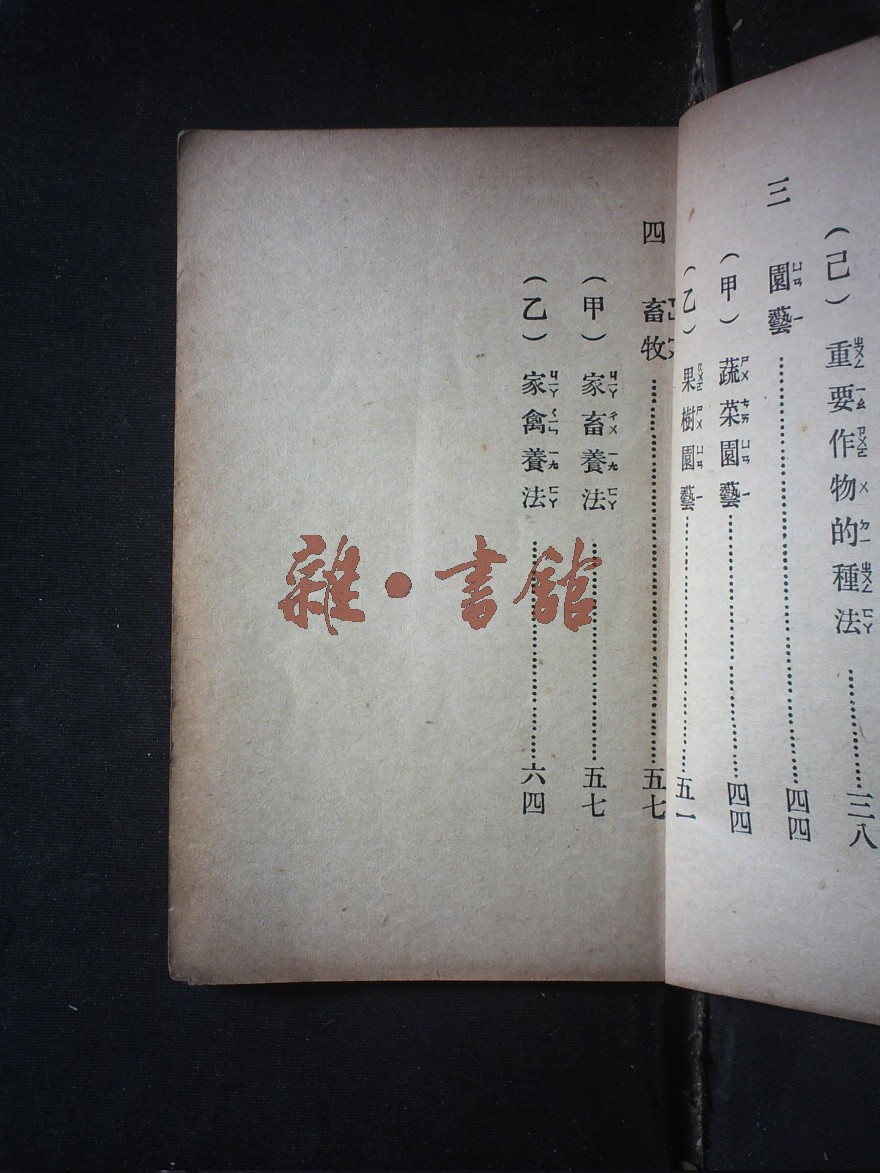 （己）重要作物的種法…………三八
三　園藝…………四四
（甲）蔬菜園藝…………四四
（乙）果樹園藝…………五一
四　畜牧…………五七
（甲）家畜養法…………五七
（乙）家禽養法…………六四
雜・書館